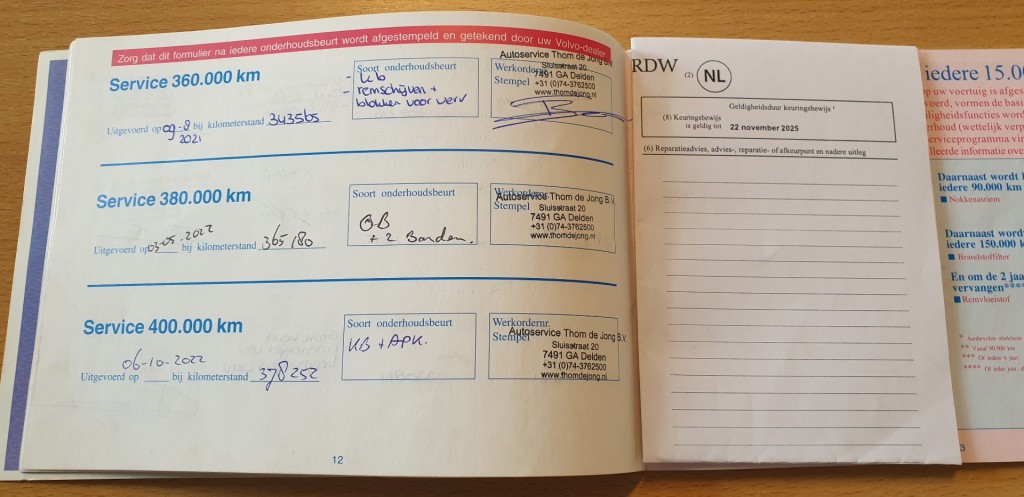 Zorg dat dit formulier na iedere onderhoudsbeurt wordt afgestempeld en getekend door uw Volvo-dealer
Service 360.000 km
Soort onderhoudsbeurt
- kb
- remschijven +
blokken voor verv
Werkordernr.
Stempel
Autoservice Thom de Jong B.V.
Sluisstraat 20
7491 GA Delden
+31 (0)74-3762500
www.thomdejong.nl
Uitgevoerd op 09-8 bij kilometerstand 343565
2021
Service 380.000 km
Soort onderhoudsbeurt
GB
+ 2 Banden.
Werkordernr.
Stempel
Autoservice Thom de Jong B.V.
Sluisstraat 20
7491 GA Delden
+31 (0)74-3762500
www.thomdejong.nl
Uitgevoerd op 03-05-2022 bij kilometerstand 365180
Service 400.000 km
Soort onderhoudsbeurt
KB + APK.
Werkordernr.
Stempel
Autoservice Thom de Jong B.V.
Sluisstraat 20
7491 GA Delden
+31 (0)74-3762500
www.thomdejong.nl
06-10-2022
Uitgevoerd op bij kilometerstand 378252
12
RDW (2) NL
Geldigheidsduur keuringsbewijs
(8) Keuringsbewijs
is geldig tot 22 november 2025
(6) Reparatieadvies, advies-, reparatie- of afkeurpunt en nadere uitleg
iedere 15.0
uw voertuig is afges
voerd, vormen de basi
ligheidsfuncties word
erhoud (wettelijk verp
erviceprogramma vin
lleerde informatie ove
Daarnaast wordt
iedere 90.000 km
Nokkenasriem
Daarnaast word
iedere 150.000
Brandstoffilter
En om de 2 jaa
vervangen****
Remvloeistof
** Vanaf 90.000 km
*** Of iedere 6 jaar
**** Of ieder jaar,
3